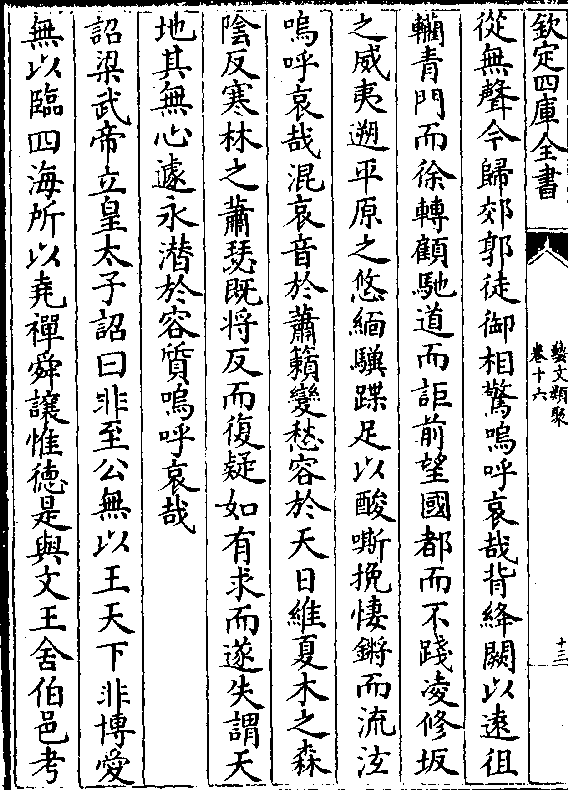 欽定四庫全書
藝文類聚
卷十六
十三
從無聲今歸郊郭徒御相驚嗚呼哀哉背絳闕以遠徂
轥青門而徐轉顧馳道而詎前望國都而不踐凌修坂
之威夷遡平原之悠緬驥蹀足以酸嘶挽悽鏘而流泫
嗚呼哀哉混哀音於蕭籟變愁容於天日維夏木之森
陰反寒林之蕭瑟既将反而復疑如有求而遂失謂天
地其無心遽永潜於容質嗚呼哀哉
詔梁武帝立皇太子詔曰非至公無以王天下非博愛
無以臨四海所以堯禪舜讓惟德是與文王舍伯邑考